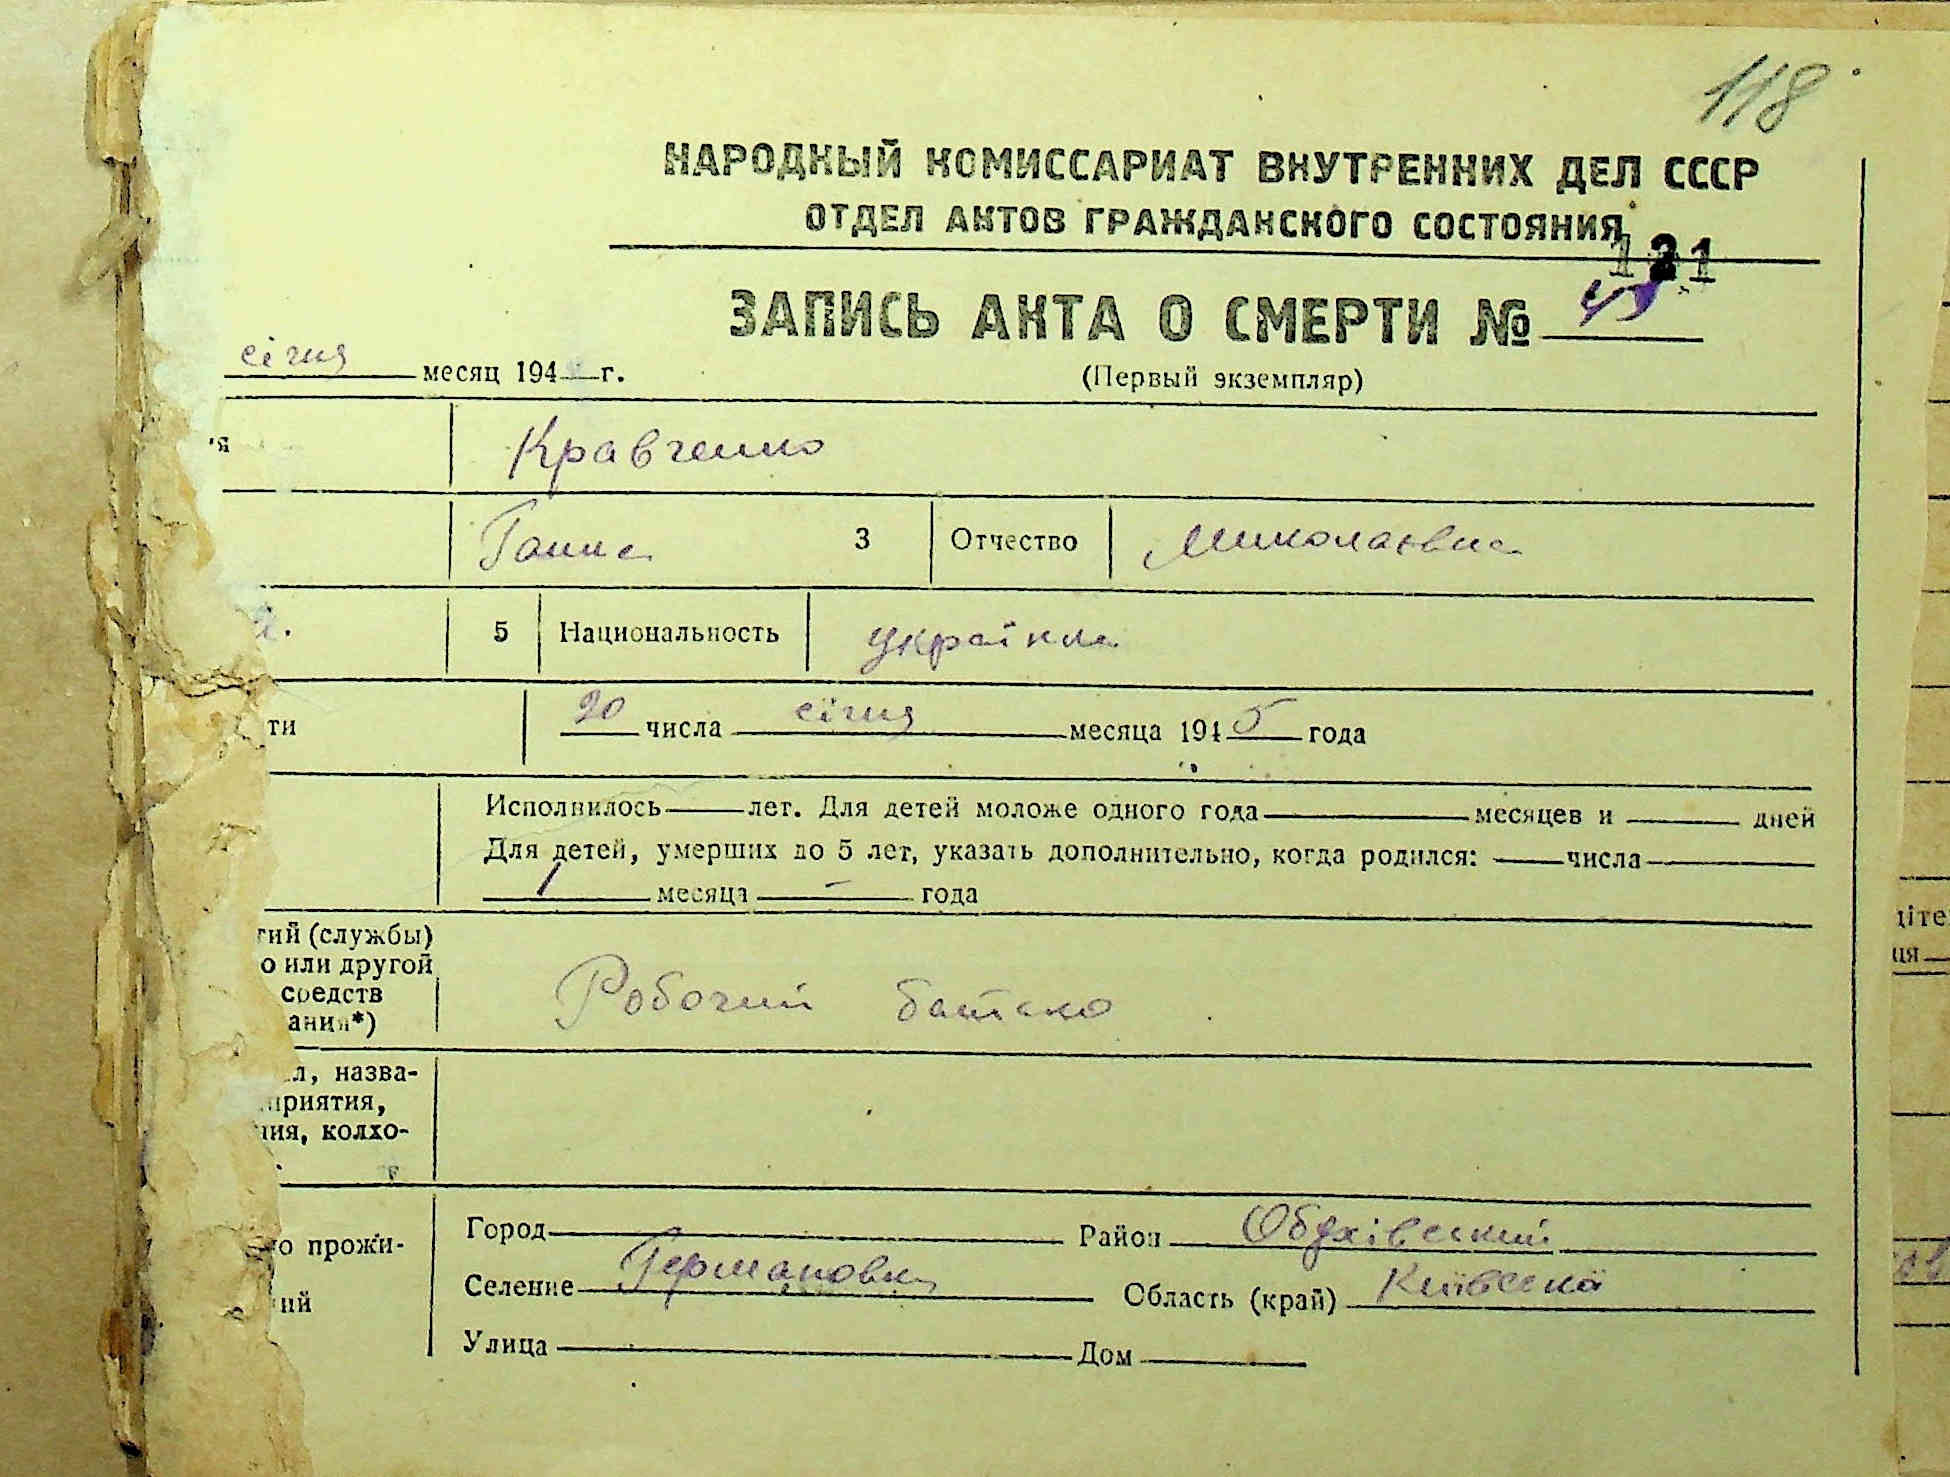 118
НАРОДНЫЙ КОМИССАРИАТ ВНУТРЕННИХ ДЕЛ СССР
ОТДЕЛ АКТОВ ГРАЖДАНСКОГО СОСТОЯНИЯ
121
ЗАПИСЬ АКТА О СМЕРТИ №
січня месяц 194 г.
(Первый экземпляр)
я Кравченко
Ганна 3 Отчество Миколаївна
5 Национальность українка
ти 20 числа січня месяца 1945 года
Исполнилось лет. Для детей моложе одного года месяцев и дней
Для детей, умерших до 5 лет, указать дополнительно, когда родился: числа
месяца года
тий (службы)
о или другой
средств
ания*)
Робочий батько
л, назва-
приятия,
ния, колхо-
Город Район Обухівський
о прожи-
Селение Германовка Область (край) Київська
ий
Улица Дом